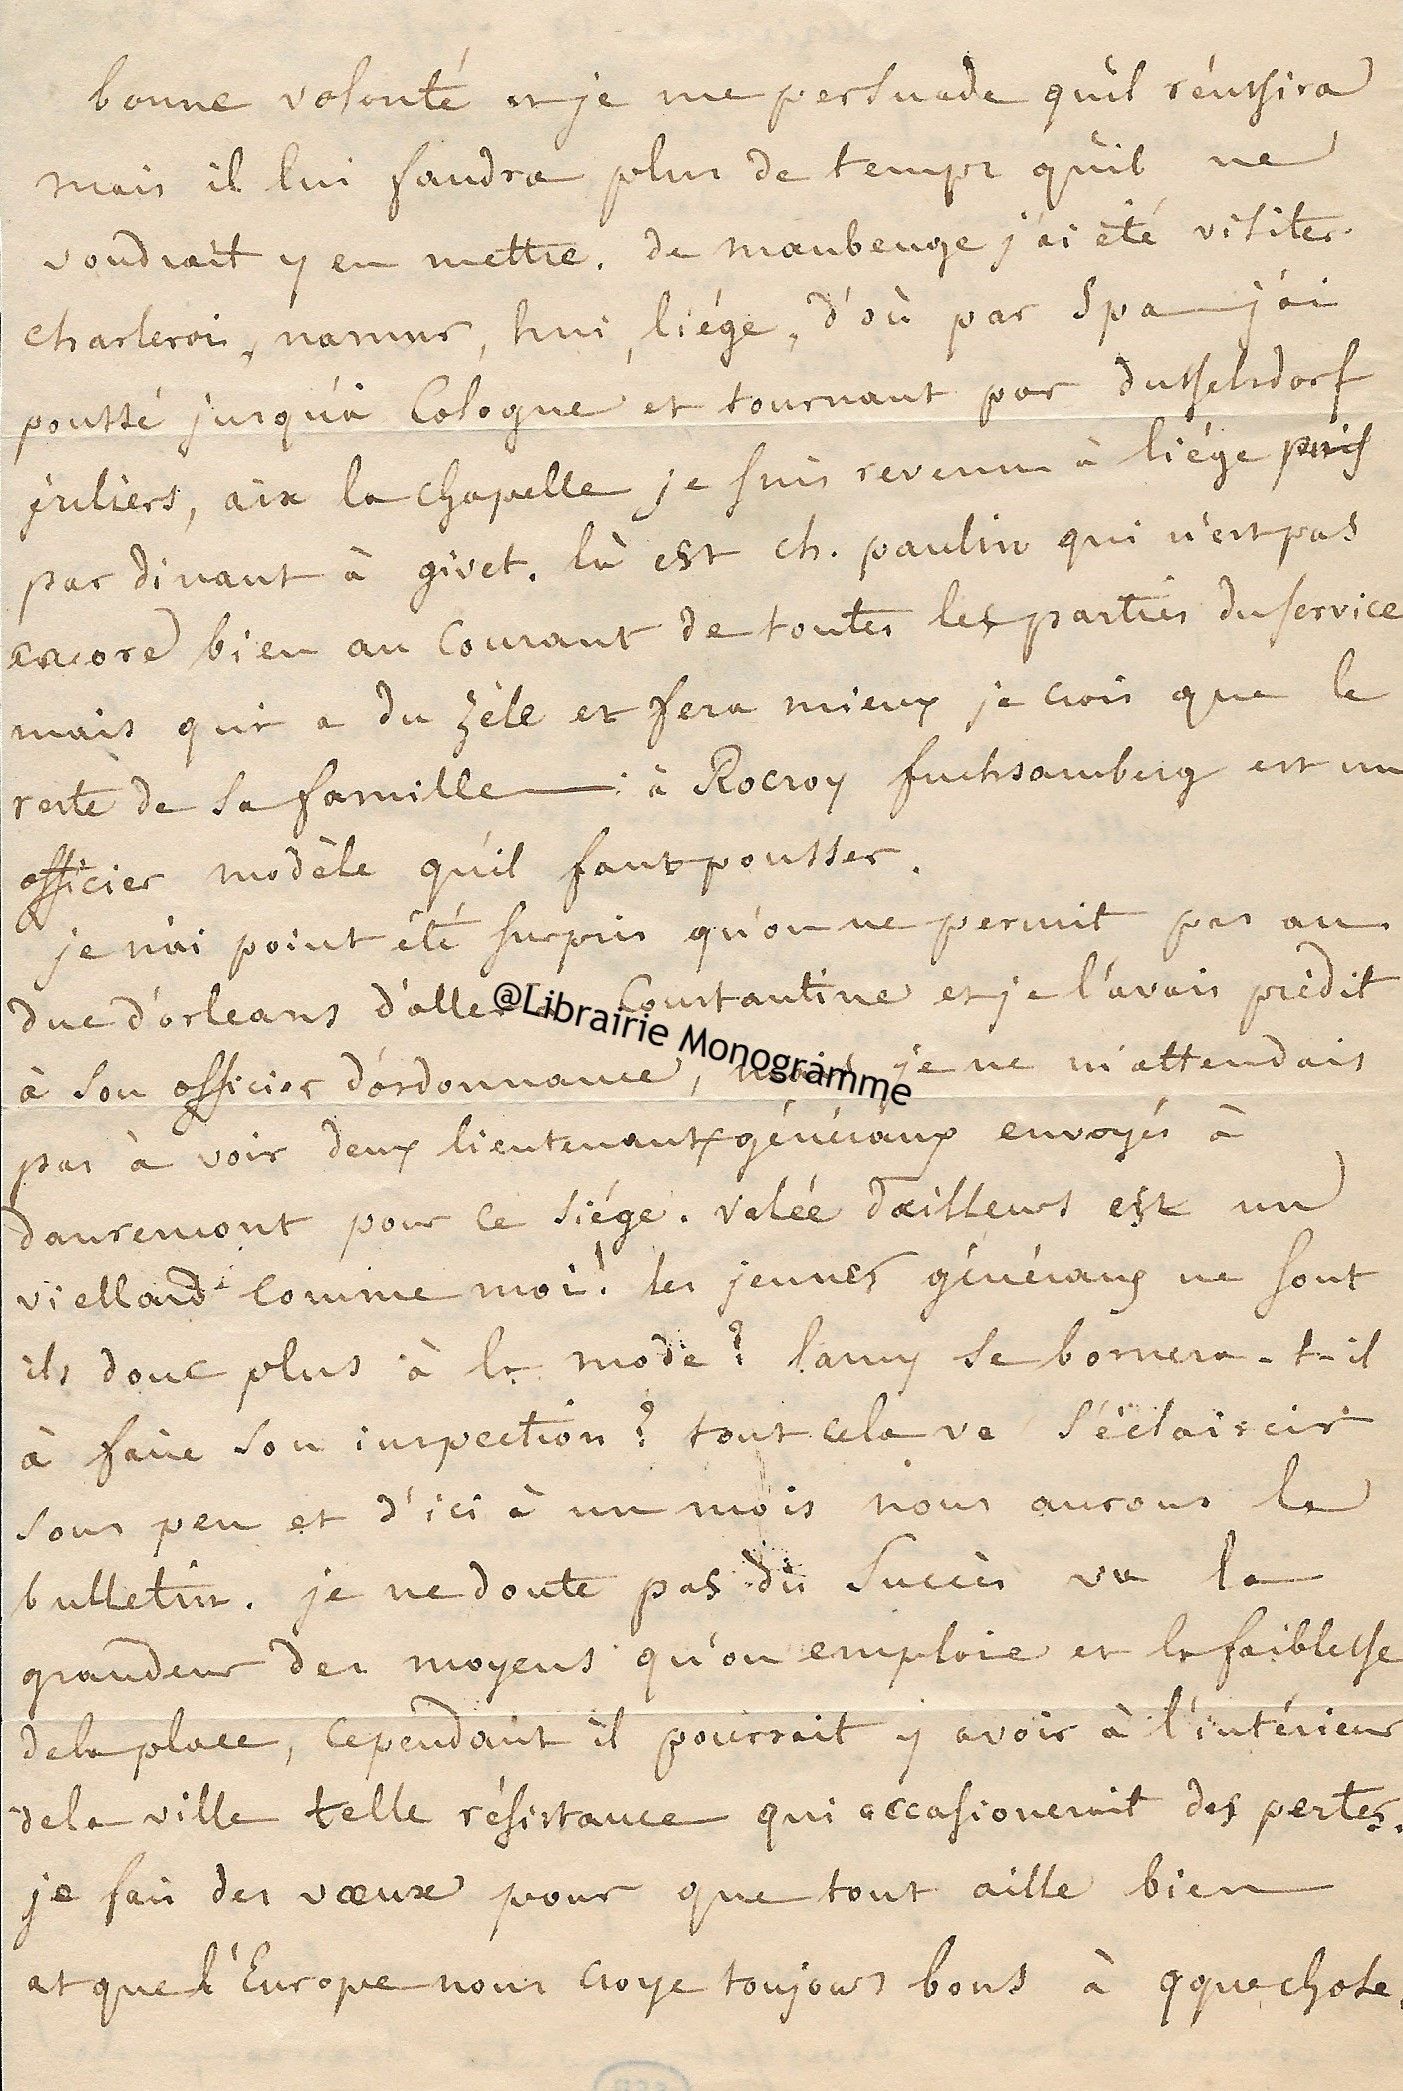 bonne volonté et je me persuade qu'il réussira
mais il lui faudra plus de temps qu'il ne
voudrait y en mettre. de maubeuge j'ai été visiter
charleroi, namur, hui, liége, d'où par Spa j'ai
poussé jusqu'à Cologne et tournant par dusselsdorf
juliers, aix la chapelle je suis revenu à liége puis
par dinant à givet. là est ch. paulin qui n'est pas
encore bien au Courant de toutes les parties du service
mais qui a du zèle et fera mieux je crois que le
reste de sa famille à Rocroy fuchsamberg est un
officier modèle qu'il faut pousser.
je n'ai point été surpris qu'on ne permit pas au
duc d'orleans d'aller à Constantine et je l'avais prédit
à son officier d'ordonnance, mais je ne m'attendais
@Librairie Monogramme
pas à voir deux lieutenants généraux envoyés à
danremont pour ce siége. valée d'ailleurs est un
viellard comme moi! les jeunes généraux ne sont
ils donc plus à la mode? lamy se bornera-t-il
à faire son inspection? tout cela va s'éclaircir
sous peu et d'ici à un mois nous aurons le
bulletin. je ne doute pas du succès vu la
grandeur des moyens qu'on emploie et la faiblesse
de la place, cependant il pourrait y avoir à l'intérieur
de la ville telle résistance qui occasioneroit des pertes.
je fais des vœux pour que tout aille bien
et que l'Europe nous croye toujours bons à qque chose.